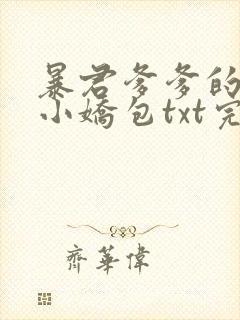 暴君爹爹的
小嬌包txt完
齊華偉